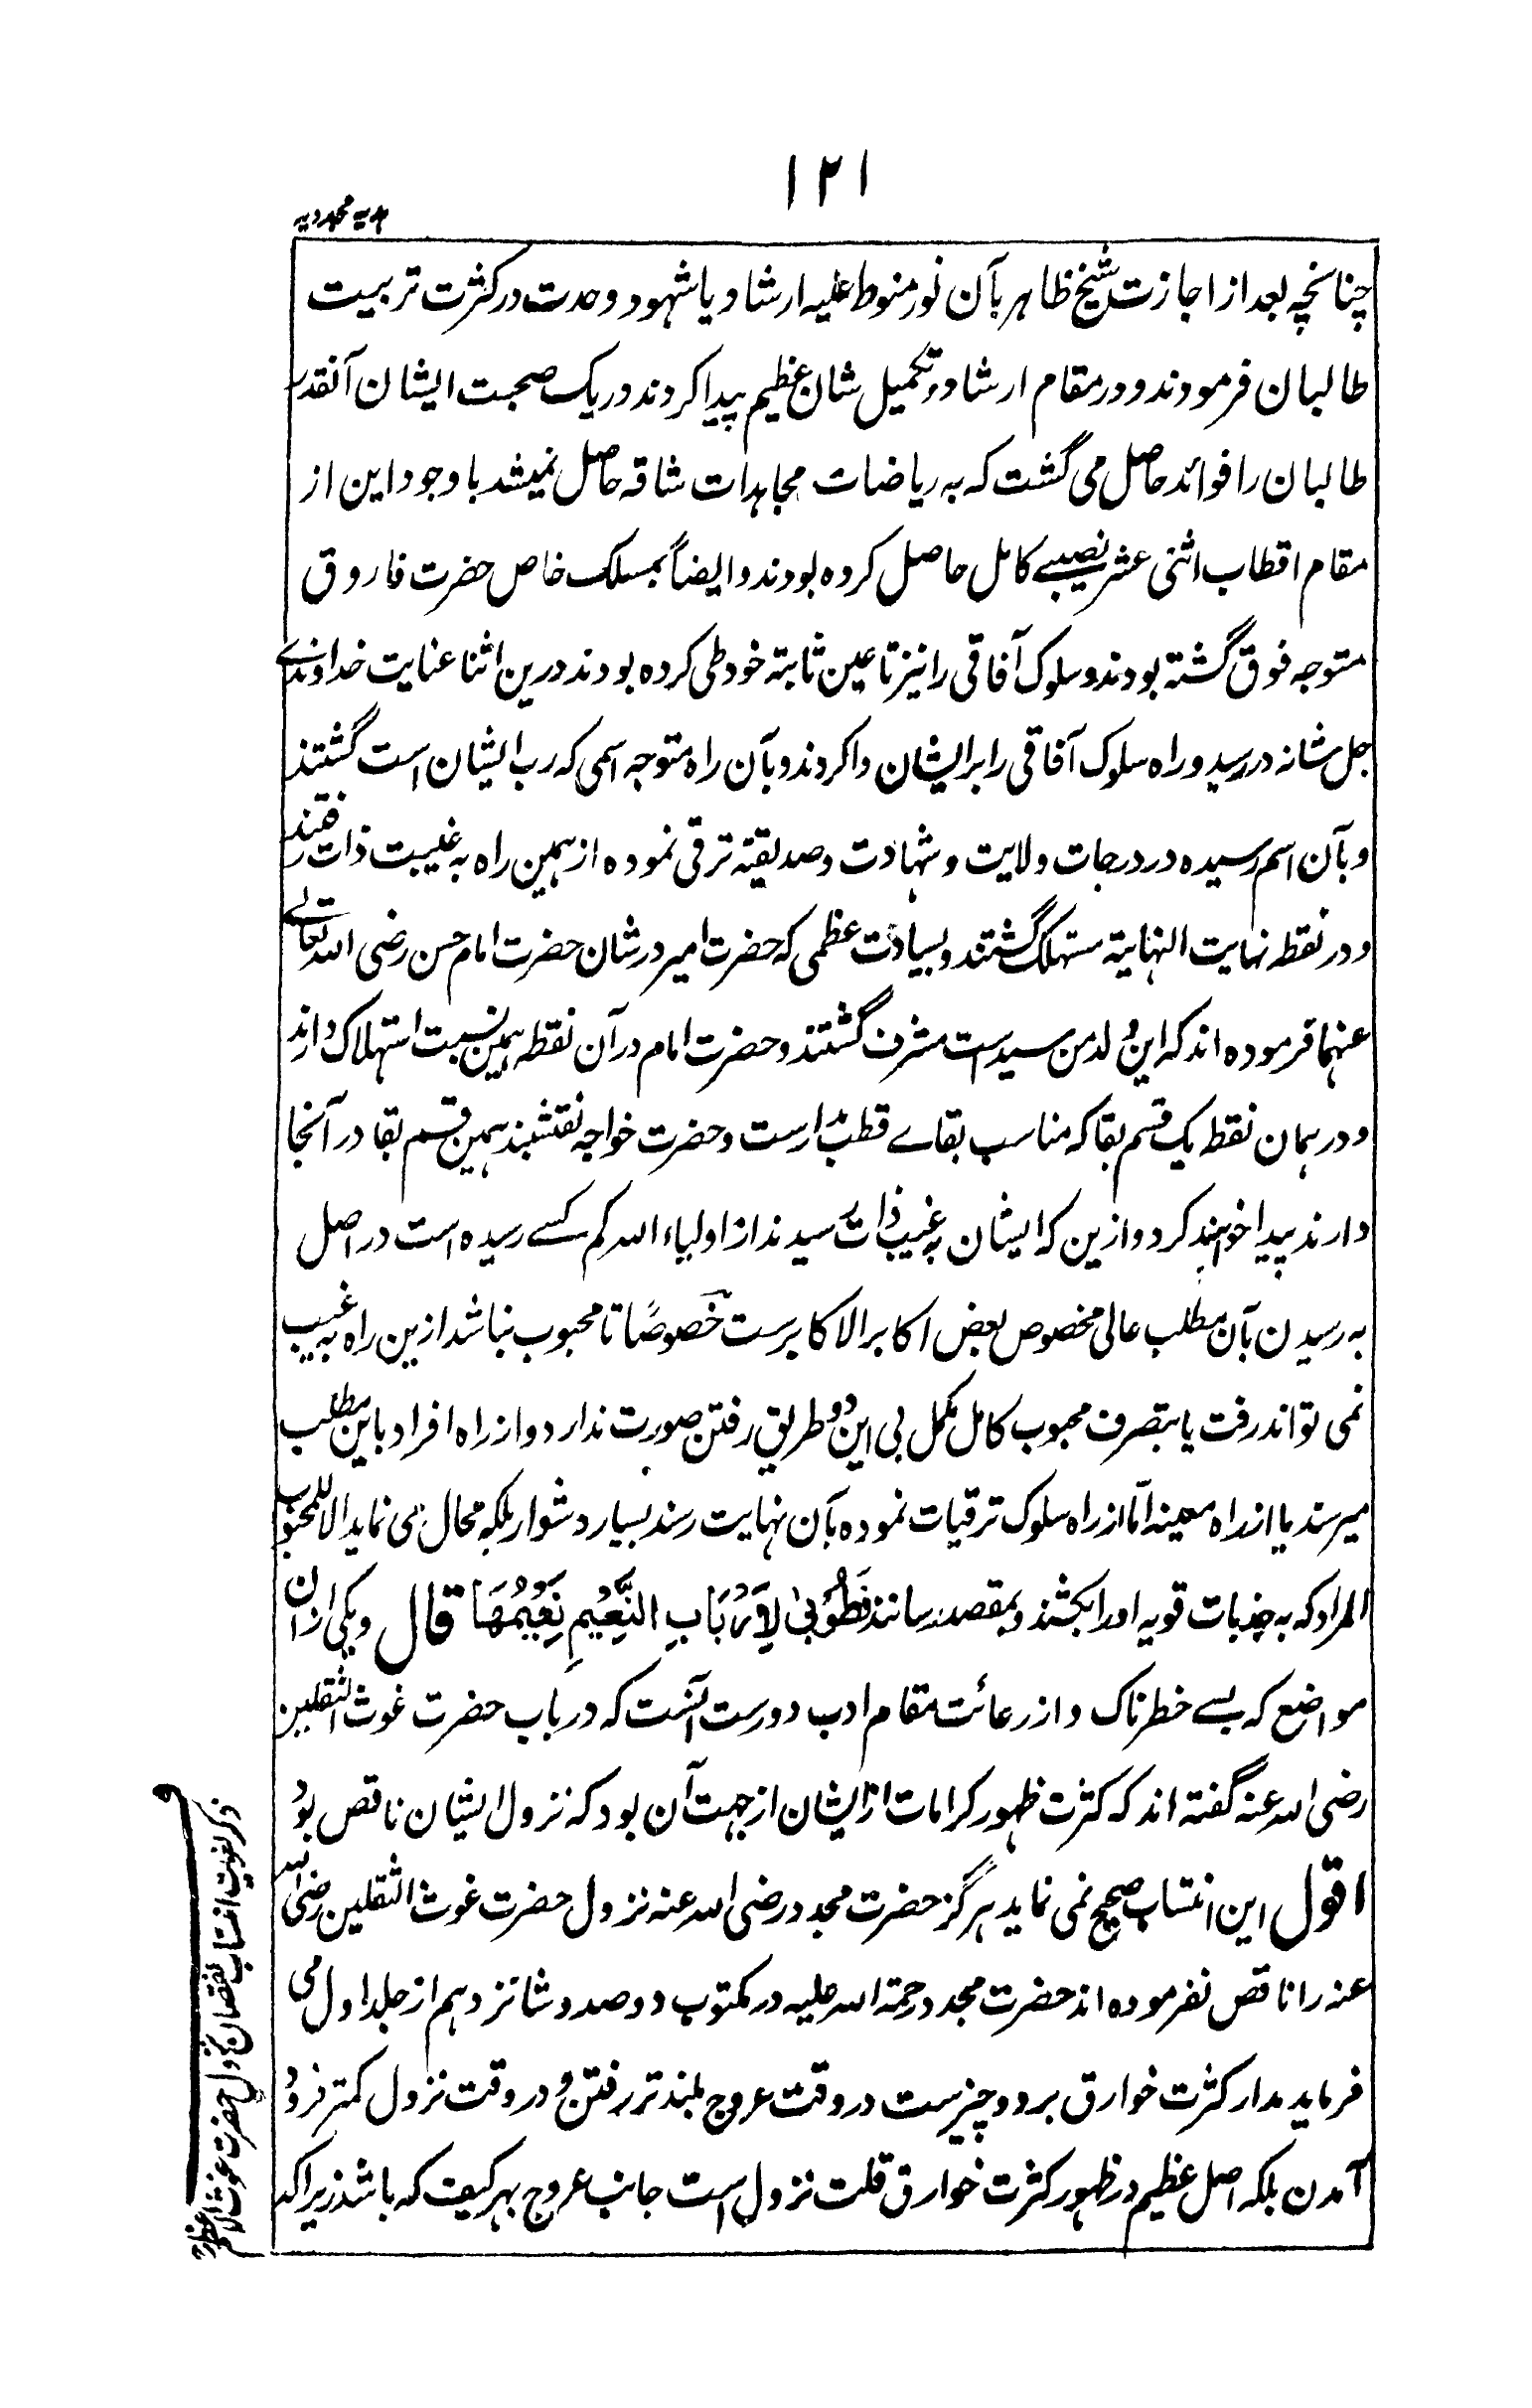 ۱۲۱
هدیه مجددیه
چنانچه بعد از اجازت شیخ ظاهر بآن نور منوط علیه ارشاد یا شهود وحدت در کثرت تربیت
طالبان فرمودند و در مقام ارشاد و تکمیل شان عظیم پیدا کردند در یک صحبت ایشان آنقدر
طالبان را فوائد حاصل می گشت که به ریاضات مجاهدات شاقه حاصل نمیشد با وجود این از
مقام اقطاب اثنی عشر نصیبے کامل حاصل کرده بودند و ایضاً بمسلک خاص حضرت فاروق
متوجه فوق گشته بودند و سلوک آفاقی را نیز تا عین ثابته خود طی کرده بودند درین اثنا عنایت خداوندے
جل شانه در رسید و راه سلوک آفاقی را بر ایشان وا کردند و بآن راه متوجه اسمی که رب ایشان است گشتند
و بآن اسم رسیده در درجات ولایت و شهادت و صدیقیته ترقی نموده از همین راه به غیبت ذات رفتند
و در نقطه نهایت النهایة مستهلک گشتند و بسیادت عظمی که حضرت امیر در شان حضرت امام حسن رضی الله تعالے
عنهما فرموده اند که این ولد من سیدست مشرف گشتند و حضرت امام در آن نقطه همین نسبت استهلاک دارند
و در همان نقطه یک قسم بقا که مناسب بقاے قطب مدارست و حضرت خواجه نقشبند همین قسم بقا در آنجا
دارند پیدا خواهند کرد و ازین که ایشان به غیب ذات رسیدند از اولیاء الله کم کسے رسیده است در اصل
به رسیدن بآن مطلب عالی مخصوص بعض اکابر الاکابرست خصوصًا تا محبوب نباشد ازین راه به غیب
نمی تواند رفت یا بتصرف محبوب کامل مکمل بی این دو طریق رفتن صورت ندارد و از راه افراد باین مطلب
میرسند یا از راه معینه امّا از راه سلوک ترقیات نموده بآن نهایت رسند بسیار دشوار بلکه محال می نماید الا للمحبوب
المراد که به جذبات قویه او را بکشند و بمقصد رسانند فَطُوْبیٰ لِاَرْبَابِ النَّعِیْمِ نَعِیْمُهَا قال و یکی از ان
مواضع که بسے خطرناک و از رعائت مقام ادب دورست آنست که در باب حضرت غوث الثقلین
رضی الله عنه گفته اند که کثرت ظهور کرامات از ایشان از جهت آن بود که نزول ایشان ناقص بود
اقول این انتساب صحیح نمی نماید هرگز حضرت مجدد رضی الله عنه نزول حضرت غوث الثقلین رضی الله
عنه را ناقص نفرموده اند حضرت مجدد رحمته الله علیه در مکتوب دوصد و شانزدهم از جلد اول می
فرماید مدار کثرت خوارق بر دو چیزست در وقت عروج بلندتر رفتن و در وقت نزول کمتر فرود
آمدن بلکه اصل عظیم در ظهور کثرت خوارق قلت نزول است جانب عروج بهر کیفیت که باشد زیرا که
ذکر لغویت انتساب نقصان نزول حضرت غوث الاعظم